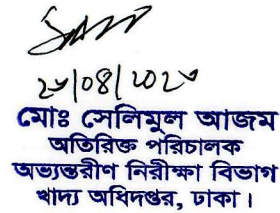 ২০/08/২০২০
মোঃ সেলিমুল আজম
অতিরিক্ত পরিচালক
অভ্যন্তরীণ নিরীক্ষা বিভাগ
খাদ্য অধিদপ্তর, ঢাকা।